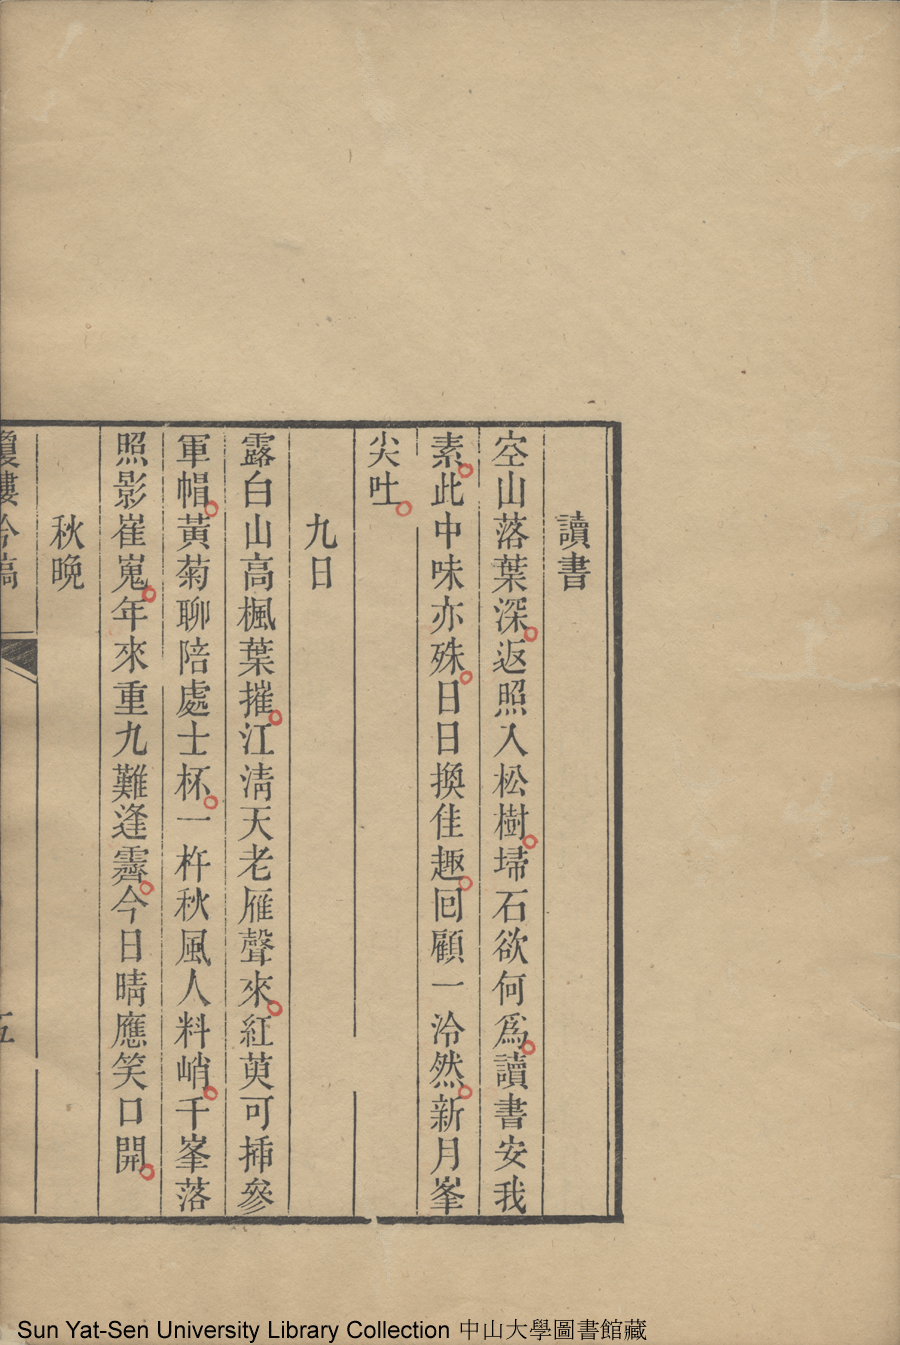 讀書
空山落葉深返照入松樹埽石欲何爲讀書安我
素此中味亦殊日日換佳趣回顧一泠然新月峯
尖吐
九日
露白山高楓葉摧江淸天老雁聲來紅萸可揷參
軍帽黃菊聊陪處士杯一杵秋風人料峭千峯落
照影崔嵬年來重九難逢霽今日晴應笑口開
秋晚
五
Sun Yat-Sen University Library Collection 中山大學圖書館藏